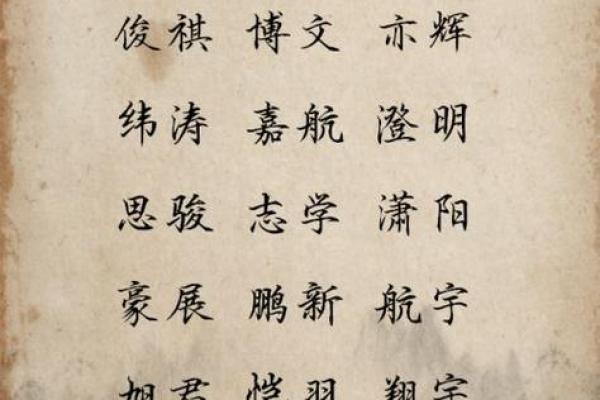 俊祺 博文 亦辉
纬涛 嘉航 澄明
思骏 志学 潇阳
豪展 鹏新 航宇
旭君 恺羽 翔宇